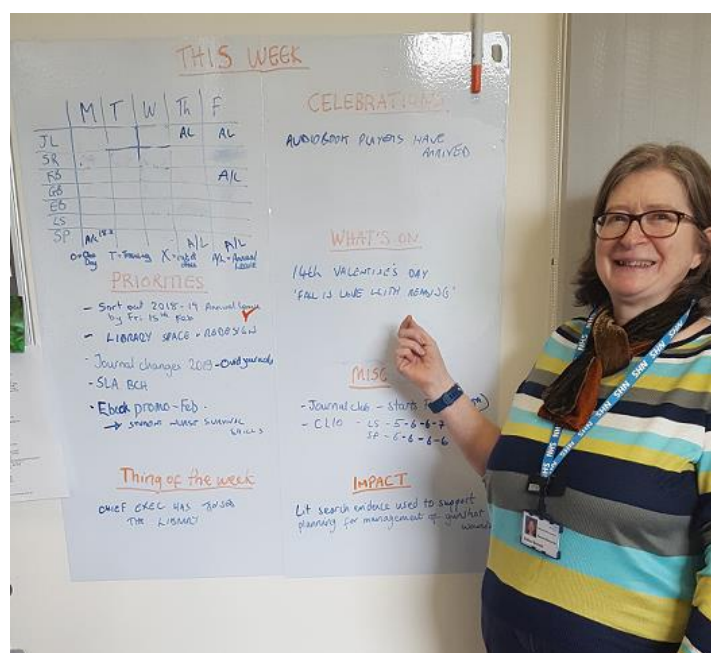 THIS WEEK
M T W Th F
JL AL AL
SR
FB A/L
GB
EB
LS
SP A/L A/L A/L
Day T = Training A/L = Annual Leave
PRIORITIES
- Sort out 2018-19 Annual leave
by Fri 15th Feb
- LIBRARY SPACE - REDESIGN
- Journal changes 2019 - Ovid journals
- SLA BCH
- Ebook promo - Feb.
→ STUDENT NURSE SURVIVAL
SKILLS
Thing of the week
CHIEF EXEC HAS JOINED
THE LIBRARY
CELEBRATIONS
AUDIOBOOK PLAYERS HAVE
ARRIVED
WHAT'S ON
14th VALENTINE'S DAY
'FALL IN LOVE WITH READING'
MISC
- Journal club - starts
- CLIO - LS - 5-6-6-7
SP - 6-6-6-6
IMPACT
Lit search evidence used to support
planning for management of gunshot
wounds
NHS NHS NHS NHS